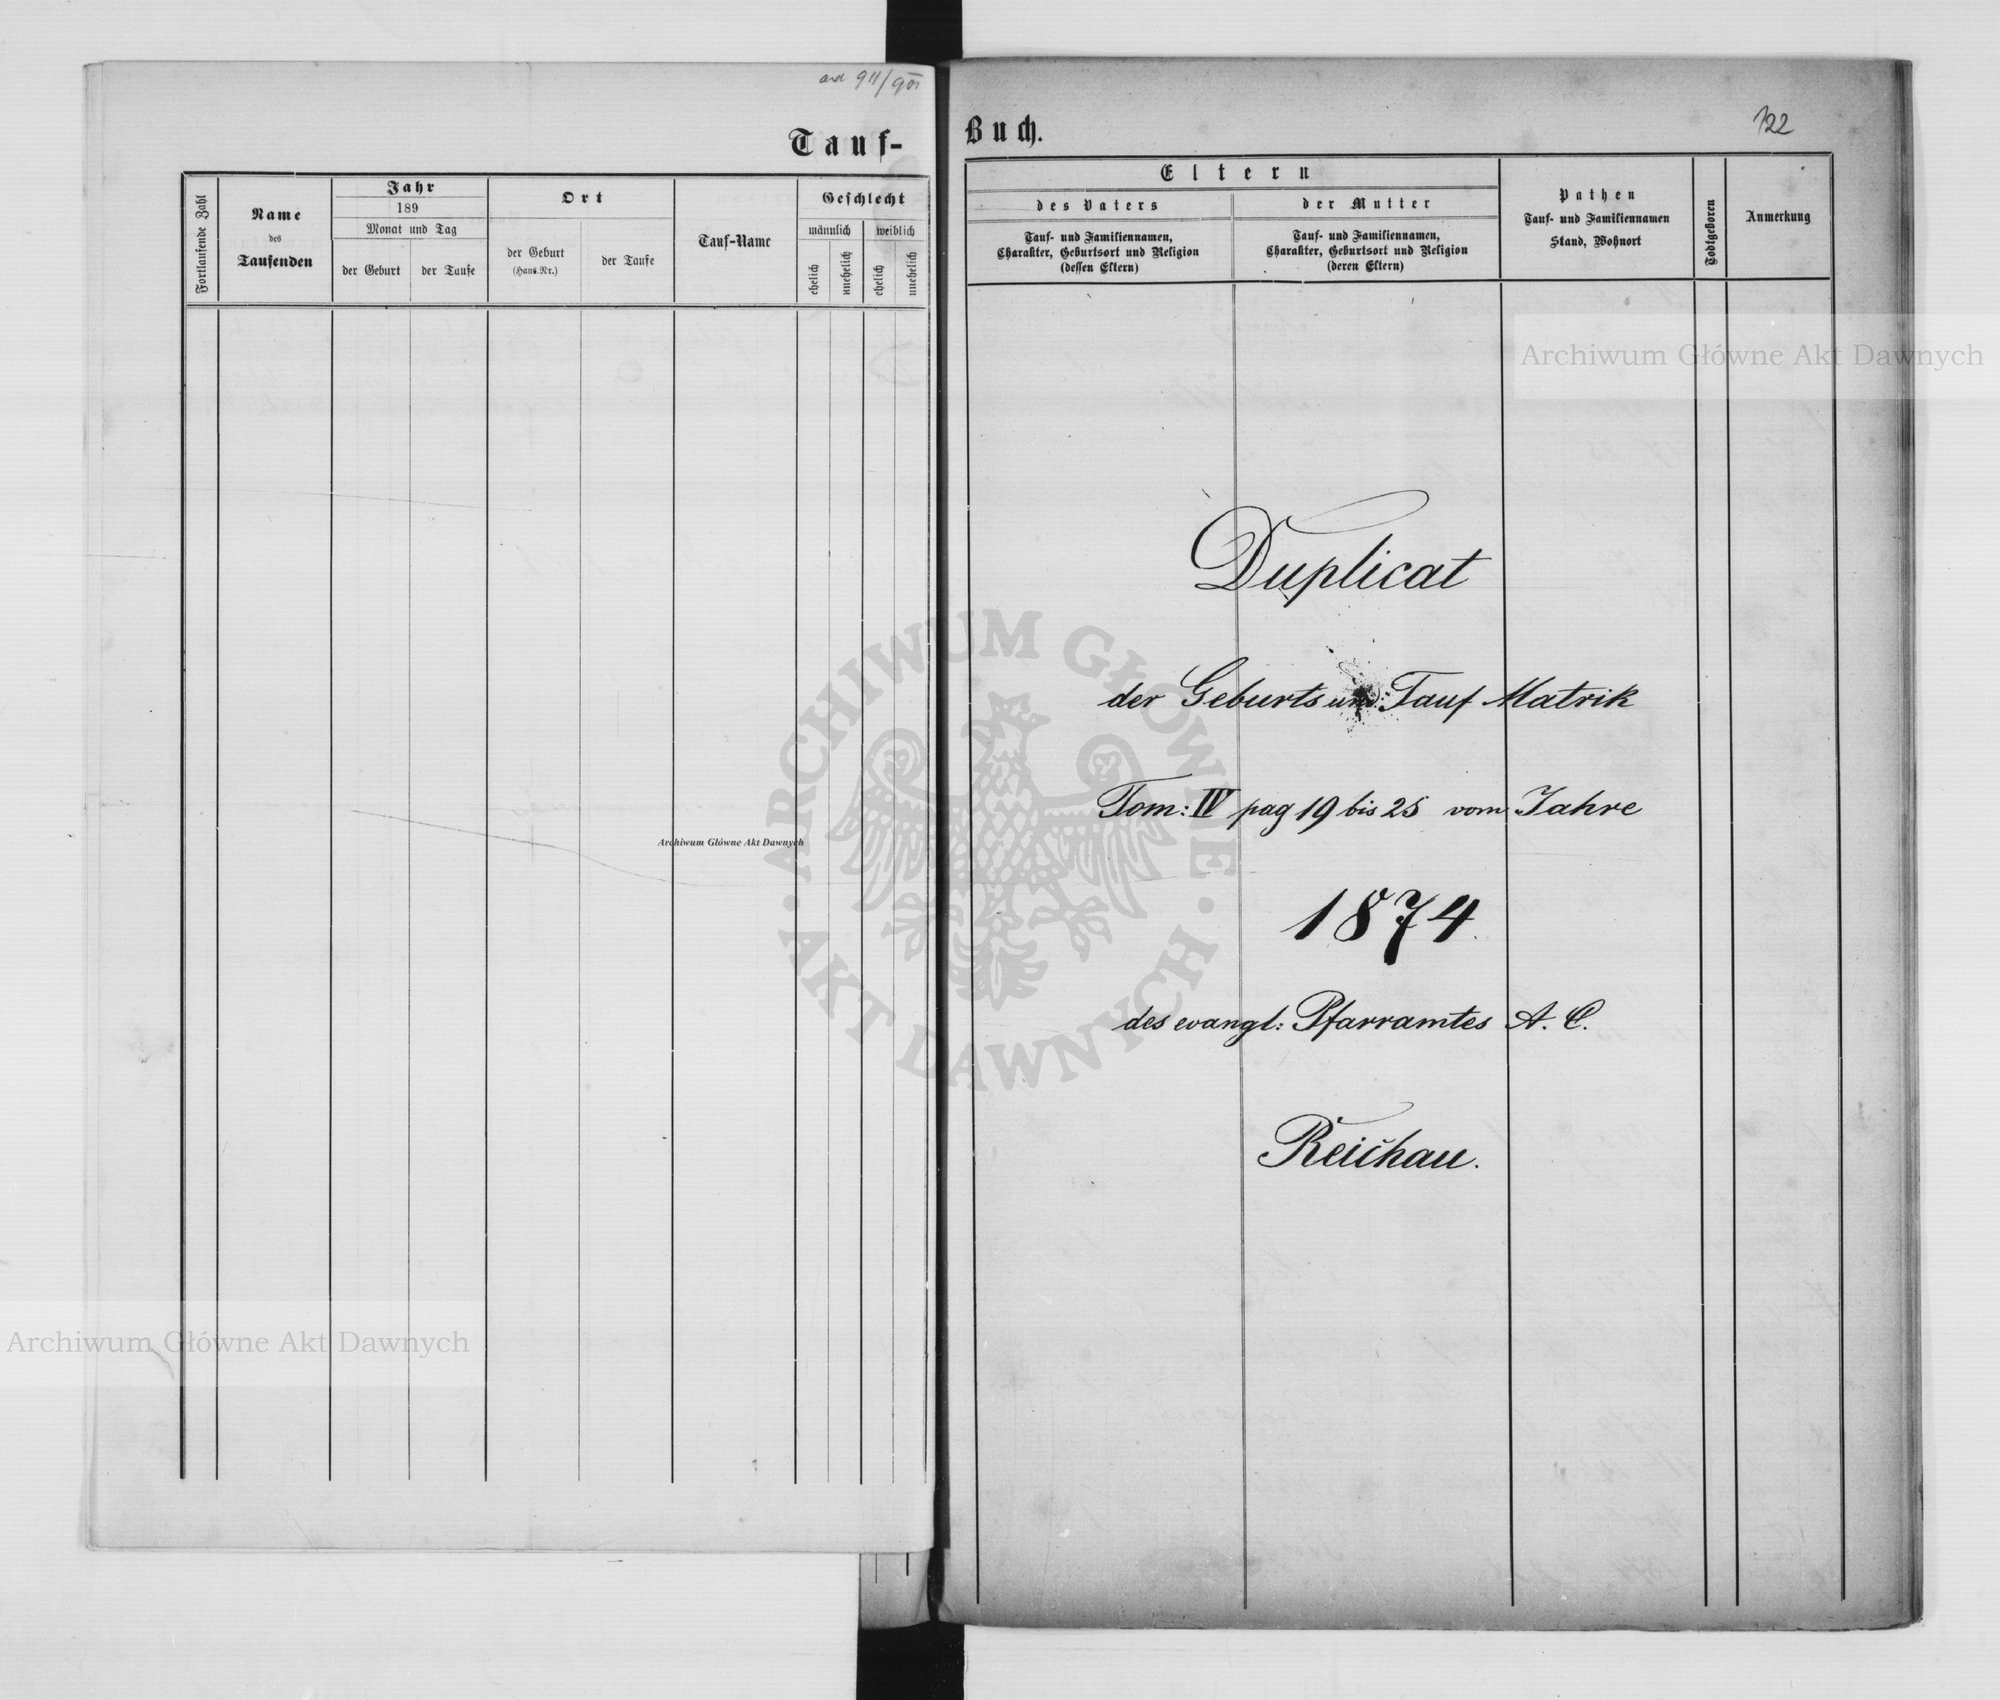 ad 911/901
Tauf-
Fortlaufende Zahl
Name
des
Taufenden
Jahr
189
Monat und Tag
der Geburt
der Taufe
Ort
der Geburt
(Haus-Nr.)
der Taufe
Tauf-Name
Geschlecht
männlich
weiblich
ehelich
unehelich
ehelich
unehelich
Buch.
122
Eltern
des Vaters
Tauf- und Familiennamen,
Charakter, Geburtsort und Religion
(dessen Eltern)
der Mutter
Tauf- und Familiennamen,
Charakter, Geburtsort und Religion
(deren Eltern)
Pathen
Tauf- und Familiennamen
Stand, Wohnort
Todtgeboren
Anmerkung
Duplicat
der Geburts und Tauf Matrik
Tom: IV pag 19 bis 25 vom Jahre
1874.
des evangl: Pfarramtes A. C.
Reichau.
Archiwum Główne Akt Dawnych
Archiwum Główne Akt Dawnych
Archiwum Główne Akt Dawnych
ARCHIWUM GŁÓWNE
AKT DAWNYCH